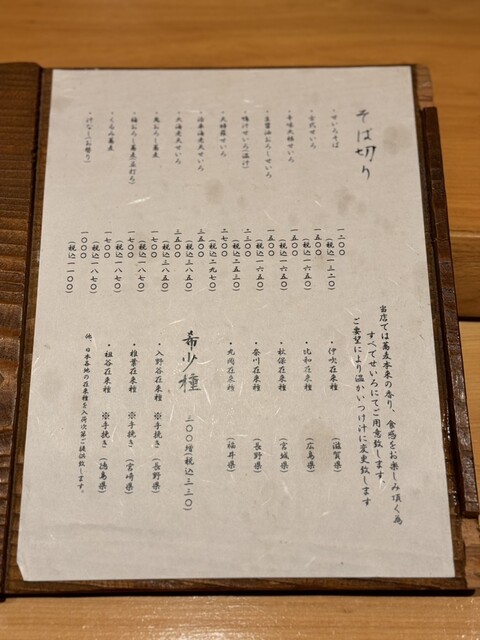 そば切り
・せいろそば
一二〇〇
（税込一三二〇）
・古式せいろ
一五〇〇
（税込一六五〇）
・辛味大根せいろ
一五〇〇
（税込一六五〇）
・生醤油おろしせいろ
一五〇〇
（税込一六五〇）
・鴨汁せいろ（温汁）
二三〇〇
（税込二五三〇）
・天婦羅せいろ
二七〇〇
（税込二九七〇）
・活車海老天せいろ
三五〇〇
（税込三八五〇）
・大海老天せいろ
三五〇〇
（税込三八五〇）
・鬼おろし蕎麦
一七〇〇
（税込一八七〇）
・梅おろし蕎麦
一七〇〇
（税込一八七〇）
・くるみ蕎麦
一七〇〇
（税込一八七〇）
一〇〇〇
（税込一一〇〇）
当店では蕎麦本来の香り、食感をお楽しみ頂く為
すべてせいろにてご用意致します。
ご要望により温かいつけ汁に変更致します
・伊吹在来種　（滋賀県）
・比和在来種　（広島県）
・秋保在来種　（宮城県）
・奈川在来種　（長野県）
・丸岡在来種　（福井県）
希少種　三〇〇増（税込三三〇）
・入野谷在来種　※手挽き（長野県）
・椎葉在来種　※手挽き（宮崎県）
・祖谷在来種　※手挽き（徳島県）
他、日本各地の在来種を入荷次第ご提供致します。